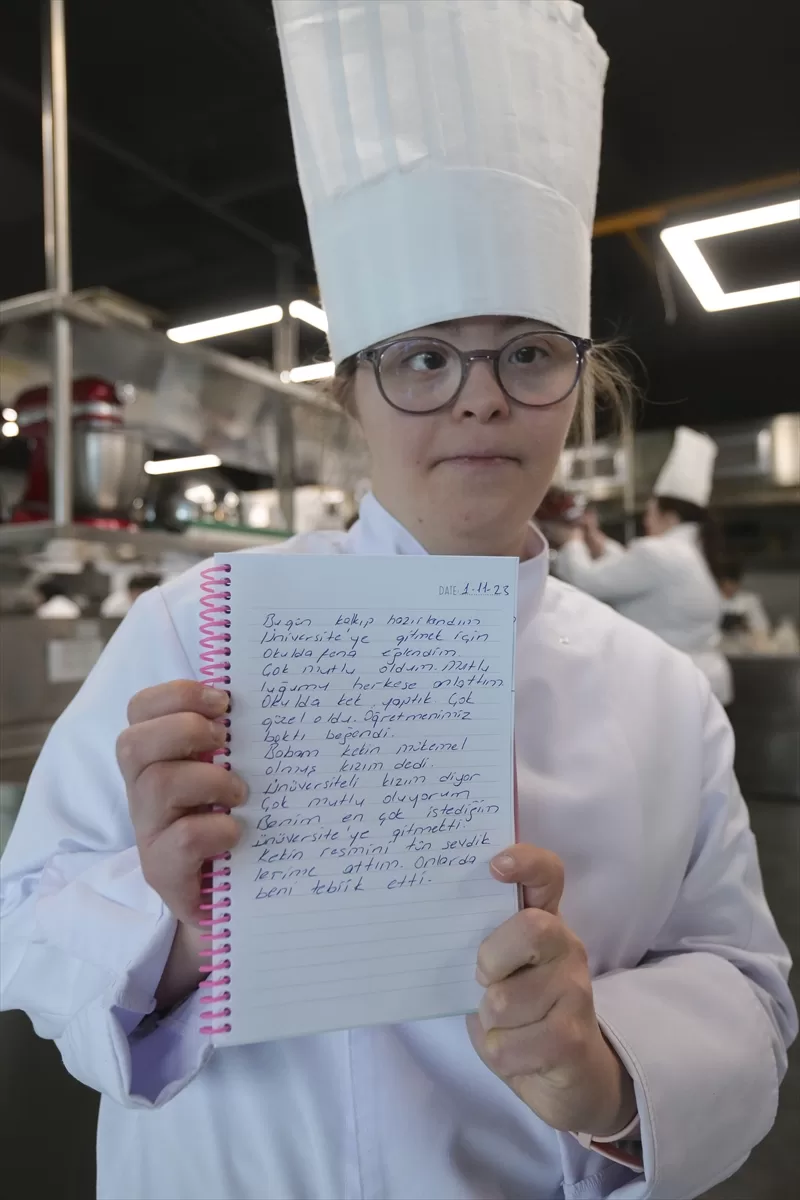 DATE: 1-11-23
Bugün kalkıp hazırlandım
Üniversite'ye gitmek için
Okulda fena eğlendim.
Çok mutlu oldum. Mutlu
luğumu herkese anlattım
Okulda kek yaptık. Çok
güzel oldu. Öğretmenimiz
baktı beğendi.
Babam kekin mükemel
olmuş kızım dedi.
Ünüversiteli kızım diyor
Çok mutlu oluyorum
Benim en çok istediğim
ünüversite'ye gitmekti.
Kekin resmini tün sevdik
lerime attım. Onlarda
beni tebrik etti.